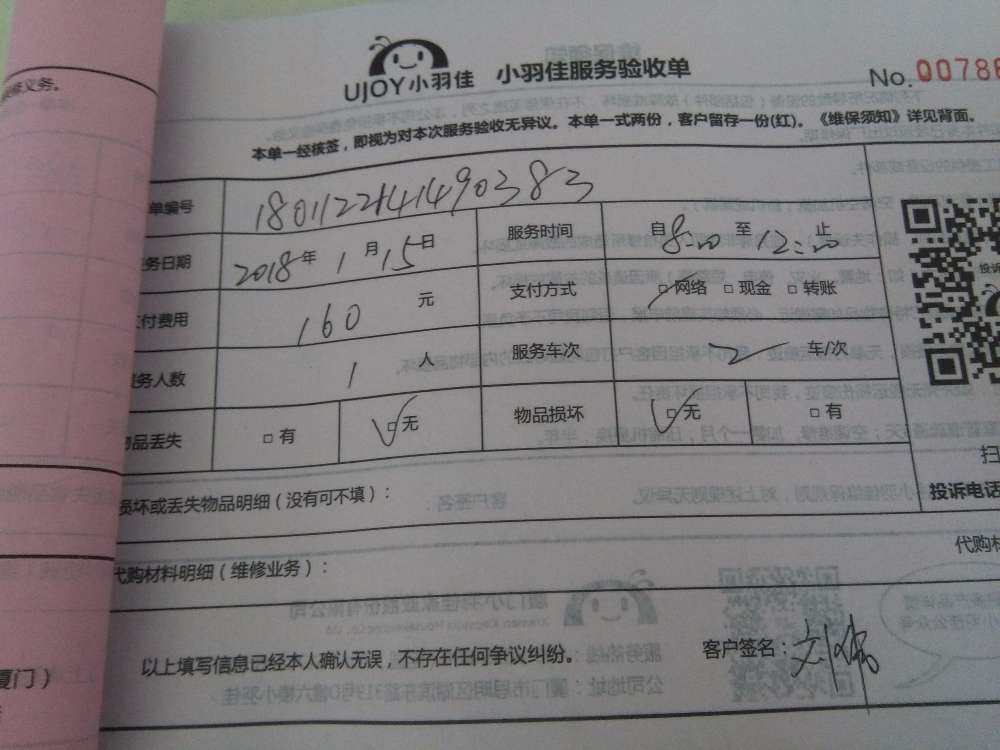 修义务。
UJOY小羽佳 小羽佳服务验收单 No.00786
本单一经核签，即视为对本次服务验收无异议。本单一式两份，客户留存一份(红)。《维保须知》详见背面。
单编号 1801122141490383
务日期 2018年1月15日 服务时间 自8:00至12:00止
付费用 160元 支付方式 □网络 □现金 □转账
务人数 1人 服务车次 2 车/次
物品丢失 □有 □无 物品损坏 □无 □有
投诉
扫
损坏或丢失物品明细（没有可不填）：
投诉电话
代购材料明细（维修业务）：
代购材
以上填写信息已经本人确认无误，不存在任何争议纠纷。 客户签名：
厦门）